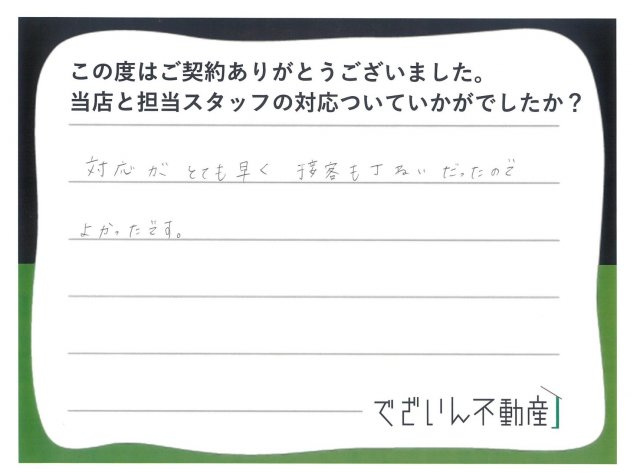 この度はご契約ありがとうございました。
当店と担当スタッフの対応ついていかがでしたか？
対応が とても早く 接客も丁ねいだったので
よかったです。
でざいん不動産